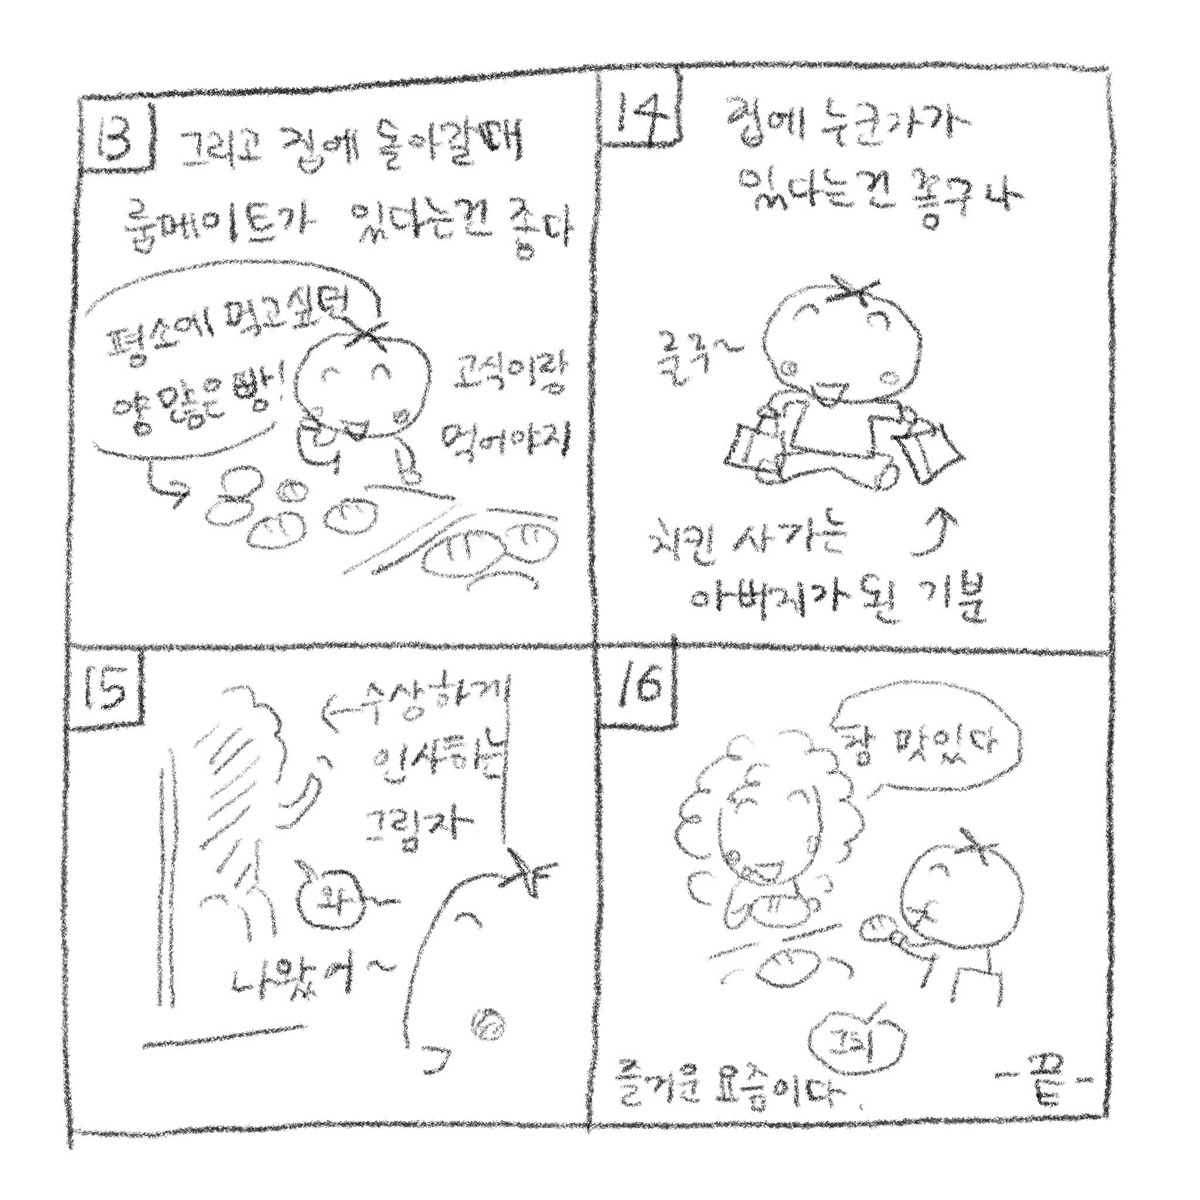 13
그리고 집에 돌아갈때
룸메이트가 있다는건 좋다
평소에 먹고싶던
양 많은 빵!
고식이랑
먹어야지
14
집에 누군가가
있다는건 좋구나
룰루~
치킨 사가는
아버지가 된 기분
15
수상하게
인사하는
그림자
와~
나왔어~
16
참 맛있다
그치
즐거운 요즘이다.
-끝-